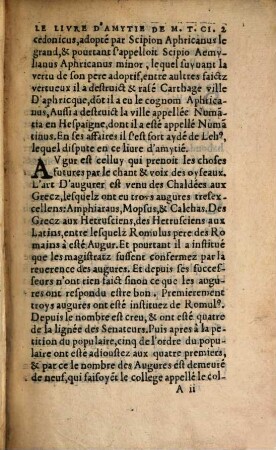 LE LIVRE D'AMYTIE DE M. T. CI. 2
cedonicus, adopté par Scipion Aphricanus le
grand, & pourtant s'appelloit Scipio Aemy-
lianus Aphricanus minor, lequel suyuant la
vertu de son pere adoptif, entre aultres faictz
vertueux il a destruict & rasé Carthage ville
D'aphricque, dōt il a eu le cognom Aphrica-
nus, Aussi a destruict la ville appellée Nomā-
tia en Hespaigne, dont il a esté appellé Nomā
tinus. En ses affaires il s'est fort aydé de Lelꝰ,
lequel dispute en ce liure d'amytié.
AVgur est celluy qui prenoit les choses
futures par le chant & voix des oyseaux.
L'art D'augurer est venu des Chaldées aux
Grecz, lesquelz ont eu troys augures tresex-
cellens: Amphiaraus, Mopsus, & Calchas. Des
Grecz aux Hetrusciens, des Hetrusciens aux
Latins, entre lesquelz Romulus pere des Ro-
mains à esté Augur. Et pourtant il a institué
que les magistratz fussent confermez par la
reuerence des augures. Et depuis ses succes-
seurs n'ont rien faict sinon ce que les augu-
res ont respondu estre bon. Premierement
troys augures ont esté instituez de Romulꝰ.
Depuis le nombre est creu, & ont esté quatre
de la lignée des Senateurs. Puis apres à la pe-
tition du populaire, cinq de l'ordre du popu-
laire ont esté adioustez aux quatre premiers,
& par ce le nombre des Augures est demeuré
de neuf, qui faisoyēt le college appellé le col-
A ii